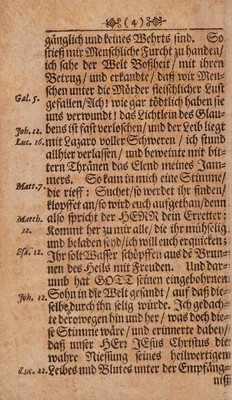 ( 4 )
gänglich und keines Wehrts sind. So
stieß mir Menschliche Furcht zu handen/
ich sahe der Welt Boßheit/ mit ihren
Betrug/ und erkandte/ daß wir Men-
schen unter die Mörder fleischlicher Lust
Gal. 5. gefallen/ Ach! wie gar tödtlich haben sie
uns verwundt! das Liechtlein des Glau-
Joh. 12. bens ist fast verloschen/ und der Leib liegt
Luc. 16. mit Lazaro voller Schweren / ich stund
allhier verlassen/ und beweinte mit bit-
tern Thränen das Elend meines Jam-
mers. So kam in mich eine Stimme/
Matt. 7 die rieff: Suchet/ so werdet ihr finden/
klopffet an/ so wird euch aufgethan/ denn
Matth. also spricht der HERR dein Erretter:
12. Kommt her zu mir alle/ die ihr mühselig
und beladen seyd/ ich will euch erquicken;
Esa. 12. Ihr solt Wasser schöpffen aus de Brun-
nen des Heils mit Freuden. Und dar-
umb hat GOTT seinen eingebohrnen
Joh. 12. Sohn in die Welt gesandt/ auf daß die-
selbe durch ihn selig würde. Ich gedach-
te derowegen hin und her/ was doch die-
se Stimme wäre/ und erinnerte daben/
daß unser HErr JEsus Christus die
wahre Niessung seines heilwertigen
Luc. 22. Leibes und Blutes unter der Empfäng-
niß